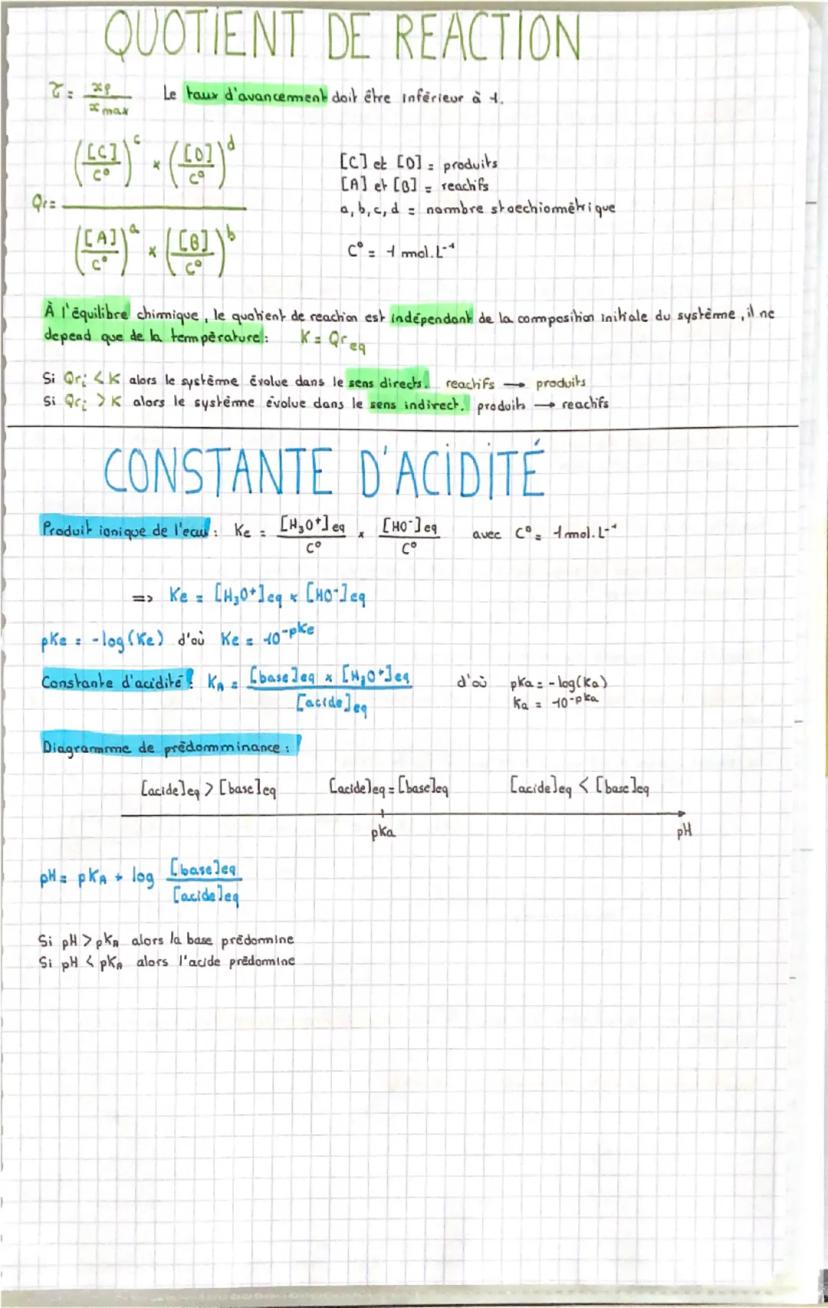 QUOTIENT DE REACTION
τ = xf / xmax Le taux d'avancement doit être inférieur à 1.
Qr = (([C]/C°)^c × ([D]/C°)^d) / (([A]/C°)^a × ([B]/C°)^b)
[C] et [D] = produits
[A] et [B] = reactifs
a, b, c, d = nombre stoechiomètrique
C° = 1 mol.L⁻¹
À l'équilibre chimique, le quotient de reaction est indépendant de la composition initiale du système, il ne
depend que de la température : K = Qr eq
Si Qri < K alors le système évolue dans le sens directs. reactifs → produits
Si Qri > K alors le système évolue dans le sens indirect. produits → reactifs
CONSTANTE D'ACIDITÉ
Produit ionique de l'eau : Ke = [H₃O⁺]eq / C° × [HO⁻]eq / C° avec C° = 1 mol.L⁻¹
=> Ke = [H₃O⁺]eq × [HO⁻]eq
pKe = -log(Ke) d'où Ke = 10^-pKe
Constante d'acidité : KA = [base]eq × [H₃O⁺]eq / [acide]eq d'où pKa = -log(Ka)
Ka = 10^-pka
Diagramme de prédomminance :
[acide]eq > [base]eq [acide]eq = [base]eq [acide]eq < [base]eq
pKa pH
pH = pKA + log [base]eq / [acide]eq
Si pH > pKA alors la base prédomine
Si pH < pKA alors l'acide prédomine